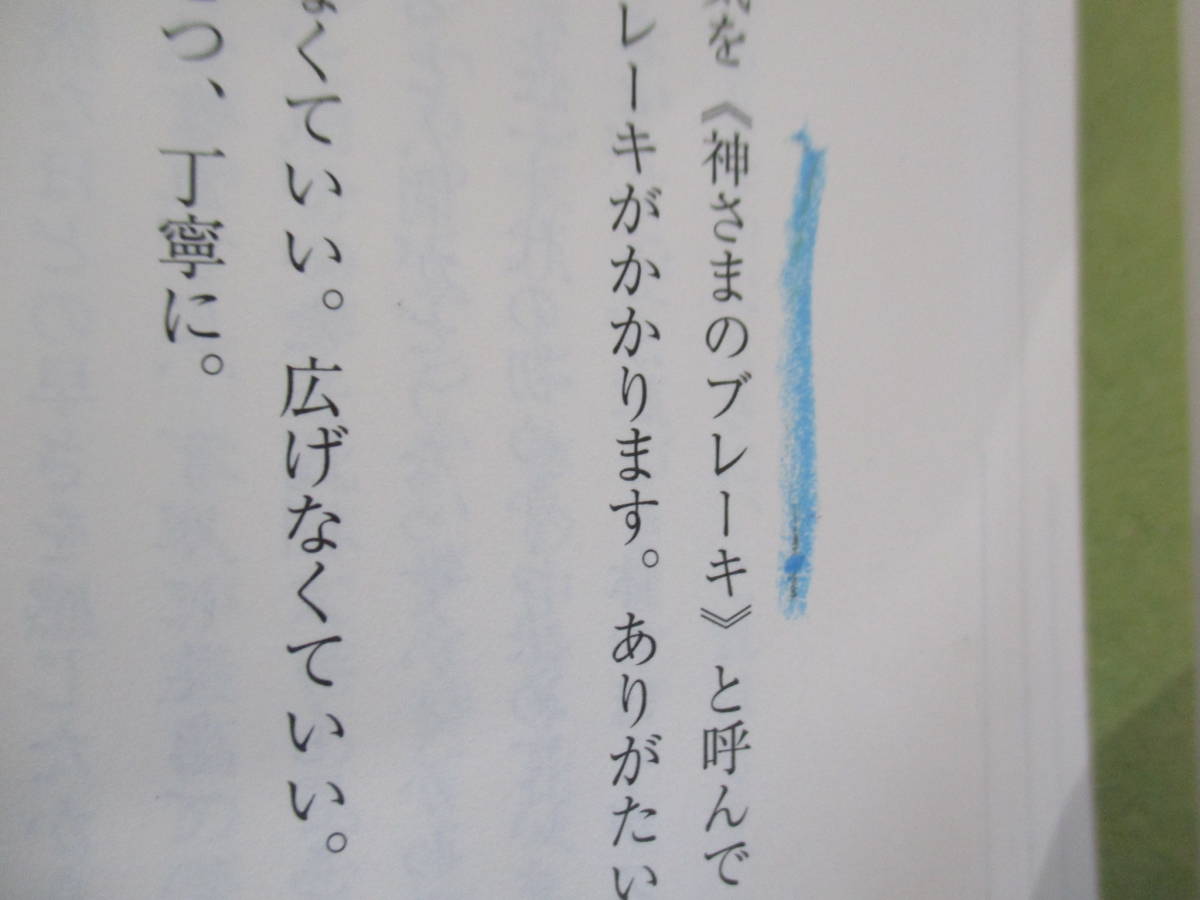 を《神さまのブレーキ》と呼んで
レーキがかかります。ありがたい
なくていい。広げなくていい。
つ、丁寧に。